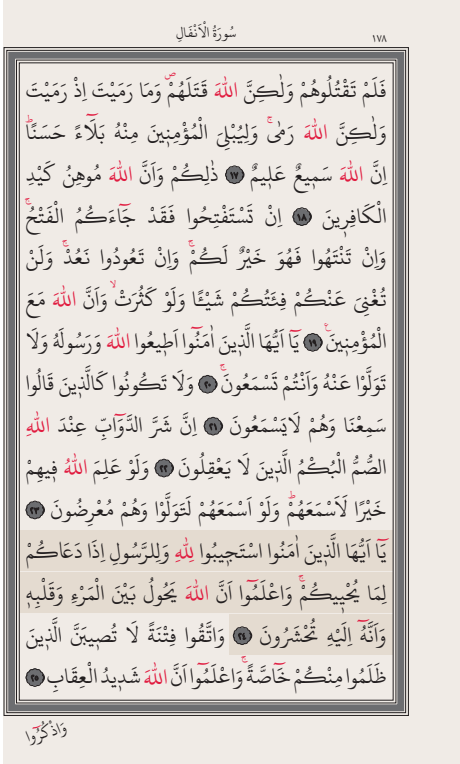 سُورَةُ الْاَنْفَالِ
١٧٨
فَلَمْ تَقْتُلُوهُمْ وَلٰكِنَّ اللّٰهَ قَتَلَهُمْۖ وَمَا رَمَيْتَ اِذْ رَمَيْتَ
وَلٰكِنَّ اللّٰهَ رَمٰىۚ وَلِيُبْلِيَ الْمُؤْمِنِينَ مِنْهُ بَلَٓاءً حَسَنًاۜ
اِنَّ اللّٰهَ سَمِيعٌ عَلِيمٌ ١٧ ذٰلِكُمْ وَاَنَّ اللّٰهَ مُوهِنُ كَيْدِ
الْكَافِرِينَ ١٨ اِنْ تَسْتَفْتِحُوا فَقَدْ جَٓاءَكُمُ الْفَتْحُۚ
وَاِنْ تَنْتَهُوا فَهُوَ خَيْرٌ لَكُمْۚ وَاِنْ تَعُودُوا نَعُدْۚ وَلَنْ
تُغْنِيَ عَنْكُمْ فِئَتُكُمْ شَيْـًٔا وَلَوْ كَثُرَتْۙ وَاَنَّ اللّٰهَ مَعَ
الْمُؤْمِنِينَ۟ ١٩ يَٓا اَيُّهَا الَّذِينَ اٰمَنُٓوا اَطِيعُوا اللّٰهَ وَرَسُولَهُ وَلَا
تَوَلَّوْا عَنْهُ وَاَنْتُمْ تَسْمَعُونَۚ ٢٠ وَلَا تَكُونُوا كَالَّذِينَ قَالُوا
سَمِعْنَا وَهُمْ لَا يَسْمَعُونَ ٢١ اِنَّ شَرَّ الدَّوَٓابِّ عِنْدَ اللّٰهِ
الصُّمُّ الْبُكْمُ الَّذِينَ لَا يَعْقِلُونَ ٢٢ وَلَوْ عَلِمَ اللّٰهُ فِيهِمْ
خَيْرًا لَاَسْمَعَهُمْۜ وَلَوْ اَسْمَعَهُمْ لَتَوَلَّوْا وَهُمْ مُعْرِضُونَ ٢٣
يَٓا اَيُّهَا الَّذِينَ اٰمَنُوا اسْتَجِيبُوا لِلّٰهِ وَلِلرَّسُولِ اِذَا دَعَاكُمْ
لِمَا يُحْيِيكُمْۚ وَاعْلَمُٓوا اَنَّ اللّٰهَ يَحُولُ بَيْنَ الْمَرْءِ وَقَلْبِهِ
وَاَنَّهُٓ اِلَيْهِ تُحْشَرُونَ ٢٤ وَاتَّقُوا فِتْنَةً لَا تُصِيبَنَّ الَّذِينَ
ظَلَمُوا مِنْكُمْ خَٓاصَّةًۚ وَاعْلَمُٓوا اَنَّ اللّٰهَ شَدِيدُ الْعِقَابِ ٢٥
وَاذْكُرُٓوا